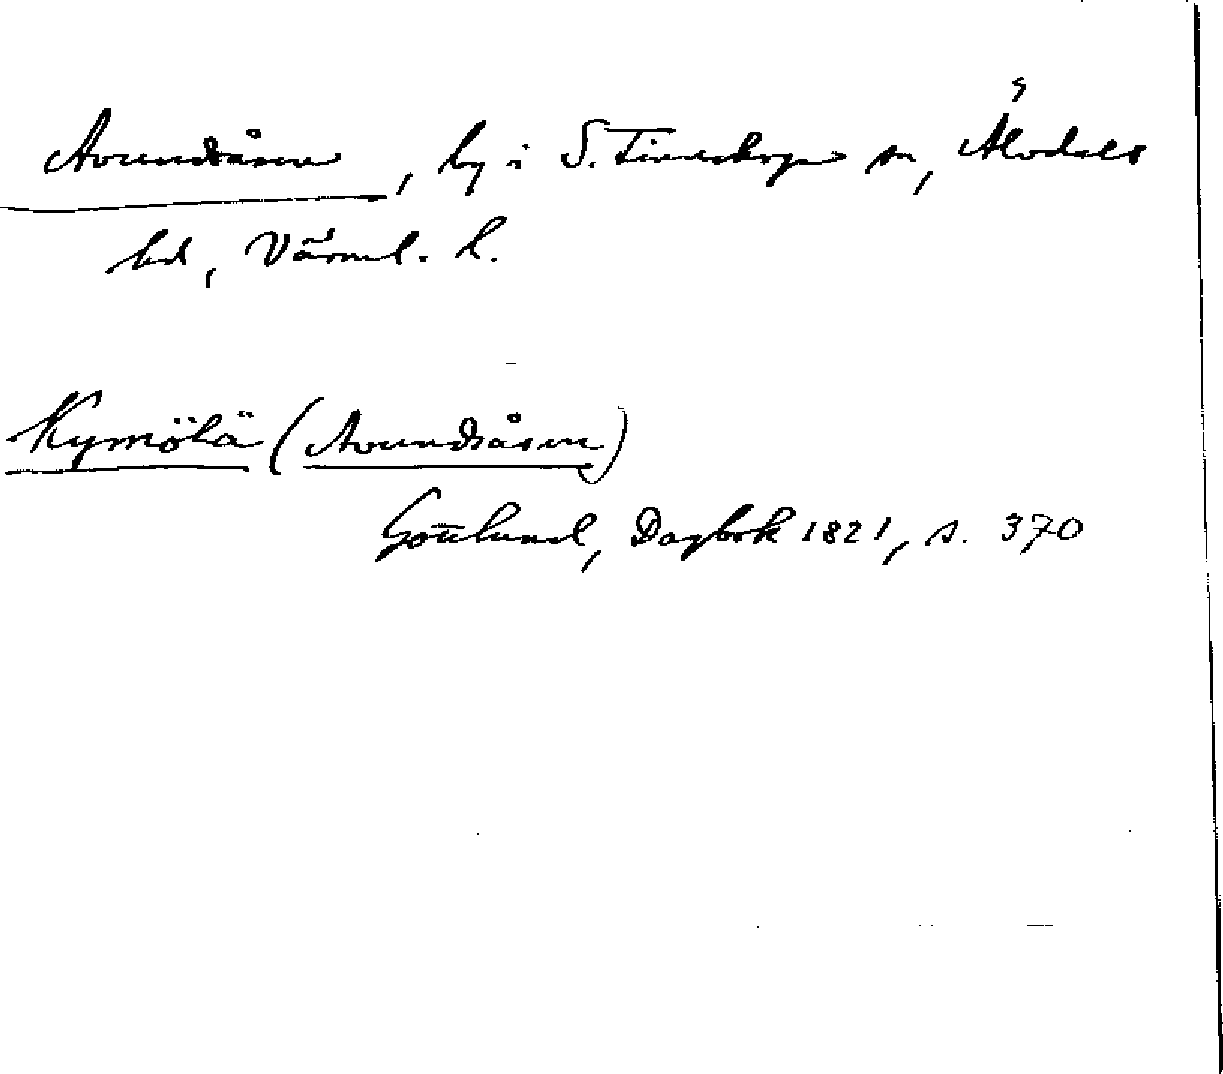 Avundsåsen, by i S. Finnskoga sn, Älvdals
hd, Värml. l.
Kymölä (Avundsåsen)
Gottlund, Dagbok 1821, s. 370